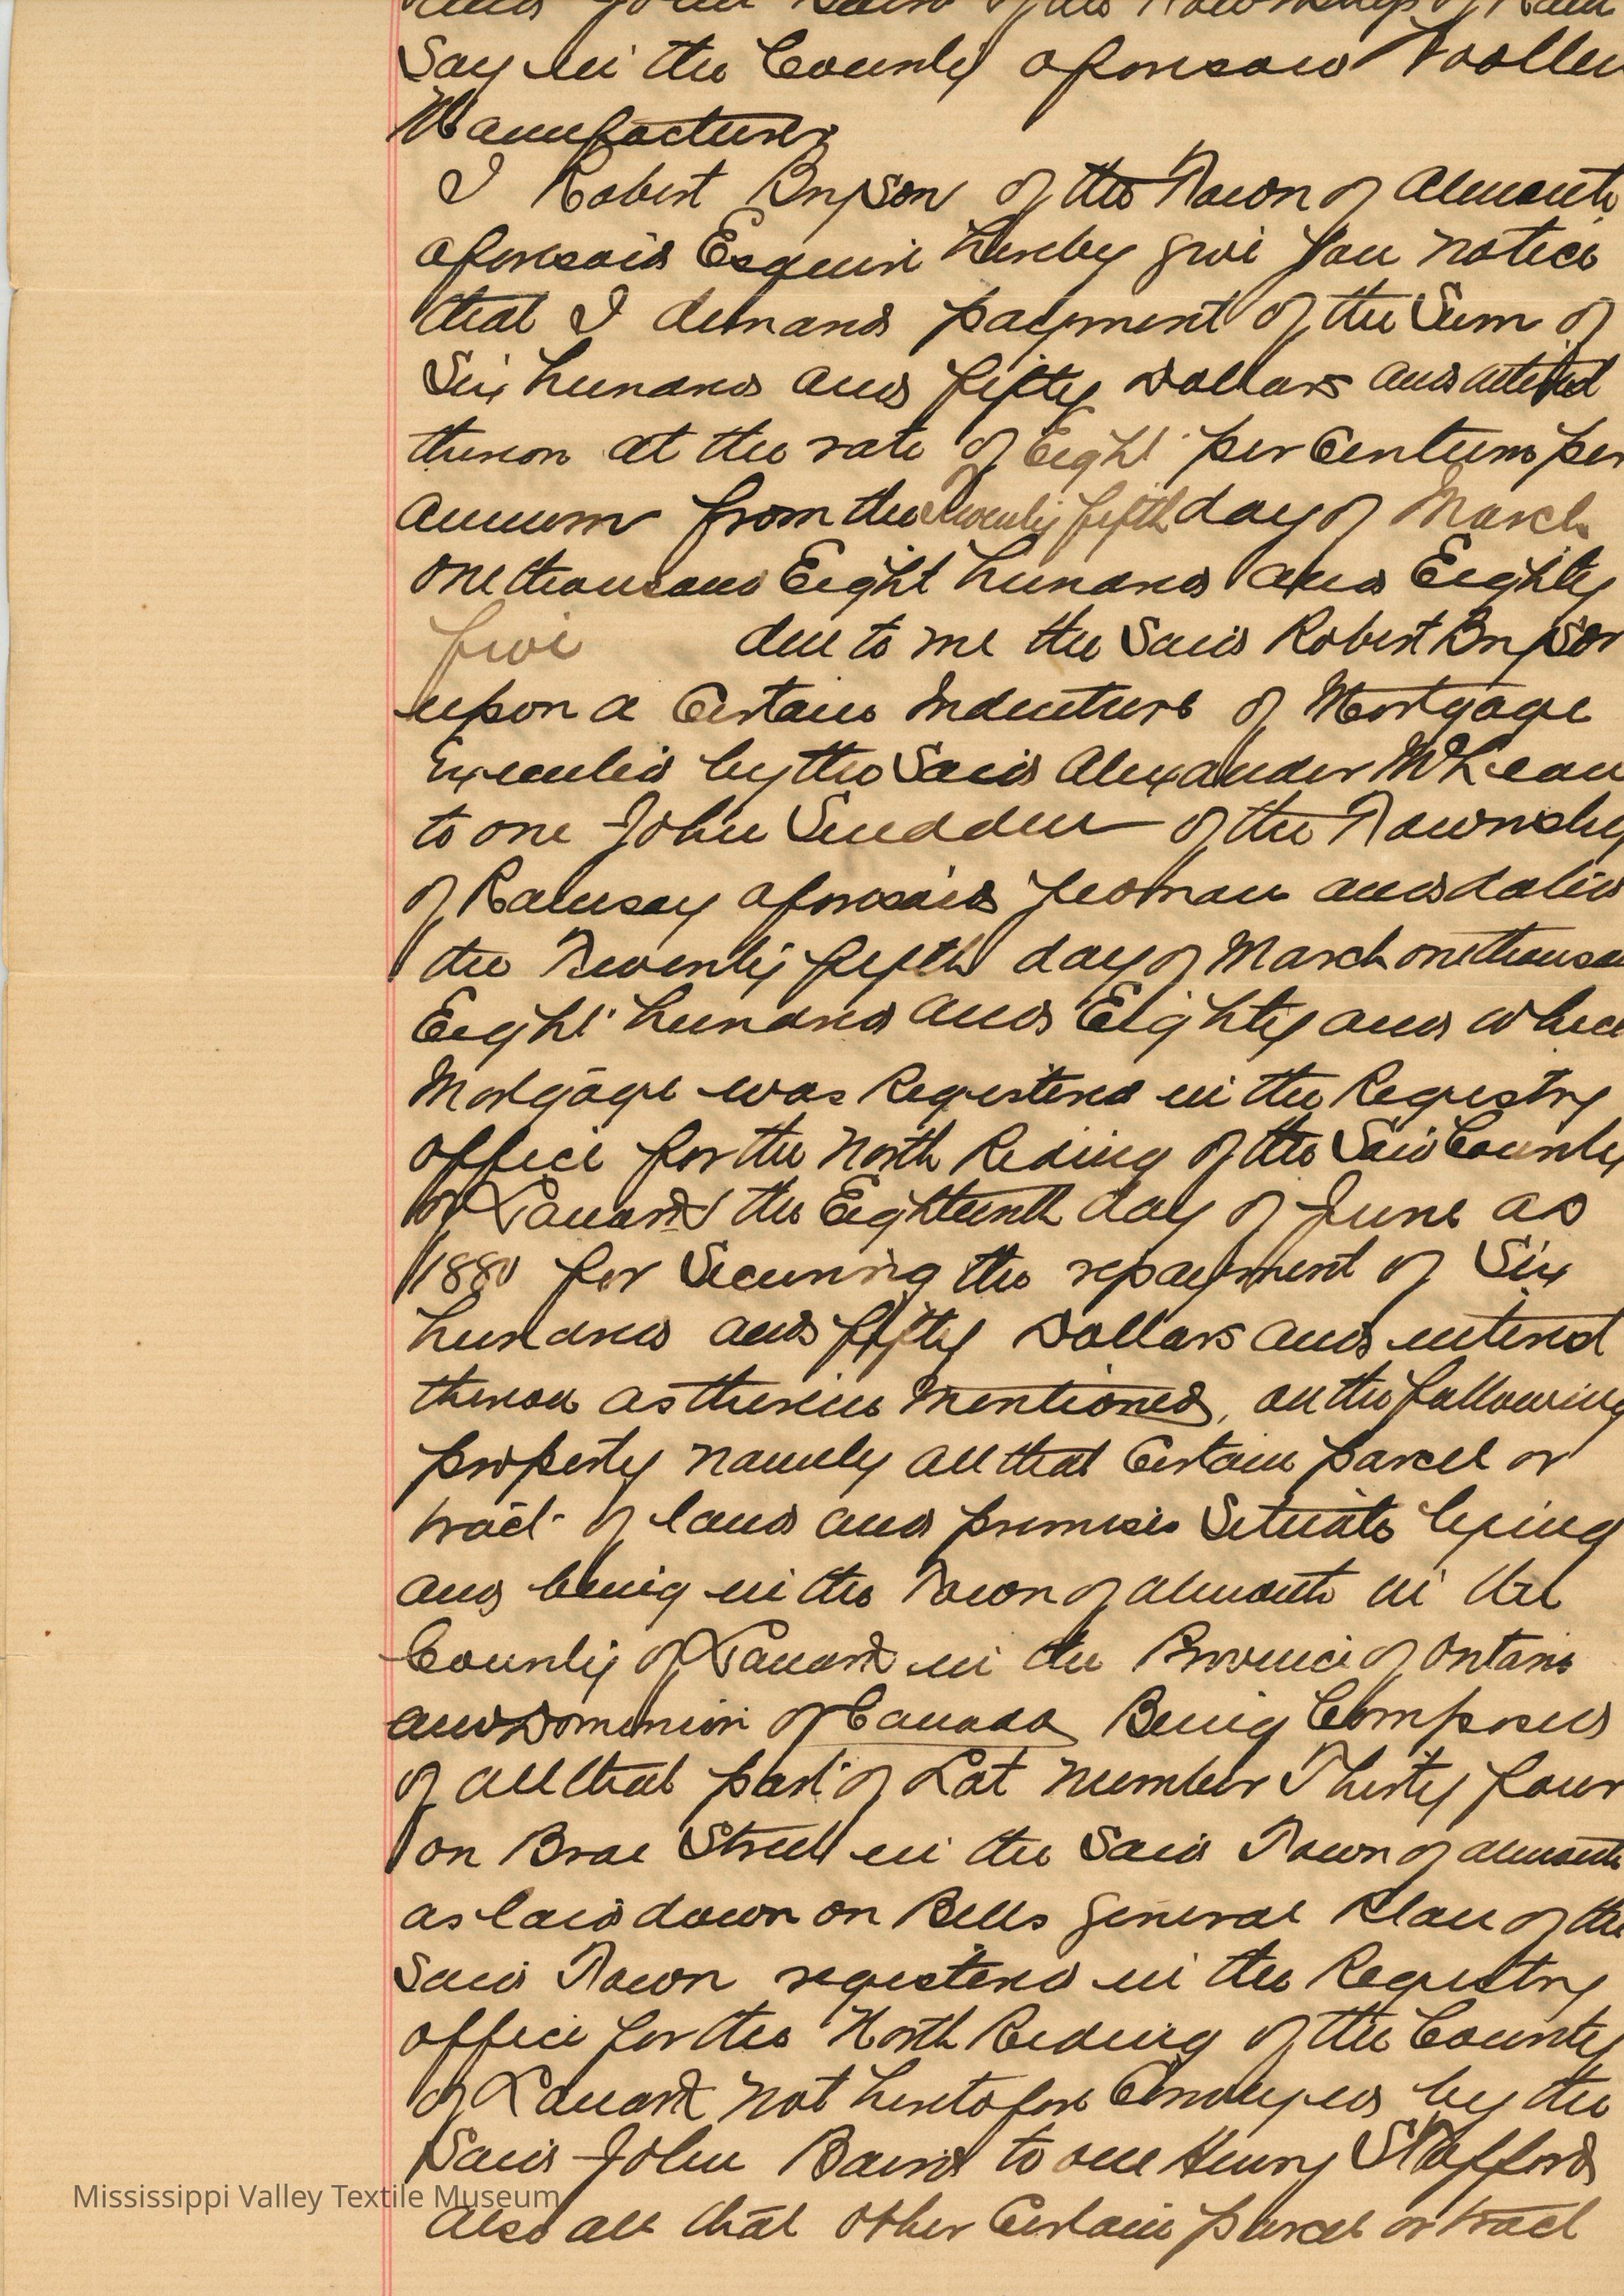 and John Baird of the Township of Ram
Say in the County aforesaid Woollen
Manufacturer
I Robert Bryson of the Town of Almonte
aforesaid Esquire hereby give you notice
that I demand payment of the Sum of
Six hundred and fifty Dollars and interest
thereon at the rate of Eight per Centum per
annum from the Twenty fifth day of March
one thousand Eight hundred and Eighty
five due to me the Said Robert Bryson
upon a Certain Indenture of Mortgage
Executed by the Said Alexander McLean
to one John Scudder of the Township
of Ramsay aforesaid yeoman and dated
the Twenty fifth day of March one thousand
Eight hundred and Eighty and which
Mortgage was Registered in the Registry
office for the North Riding of the Said County
of Lanark the Eighteenth day of June AD
1880 for Securing the repayment of Six
hundred and fifty Dollars and interest
thereon as therein mentioned, on the following
property namely all that Certain parcel or
tract of land and premises Situate lying
and being in the Town of Almonte in the
County of Lanark in the Province of Ontario
and Dominion of Canada Being Composed
of all that part of Lot number Thirty four
on Brae Street in the Said Town of Almonte
as laid down on Bells General Plan of the
Said Town registered in the Registry
office for the North Riding of the County
of Lanark not heretofore Conveyed by the
Said John Baird to one Henry Stafford
Also all that other Certain parcel or tract
Mississippi Valley Textile Museum